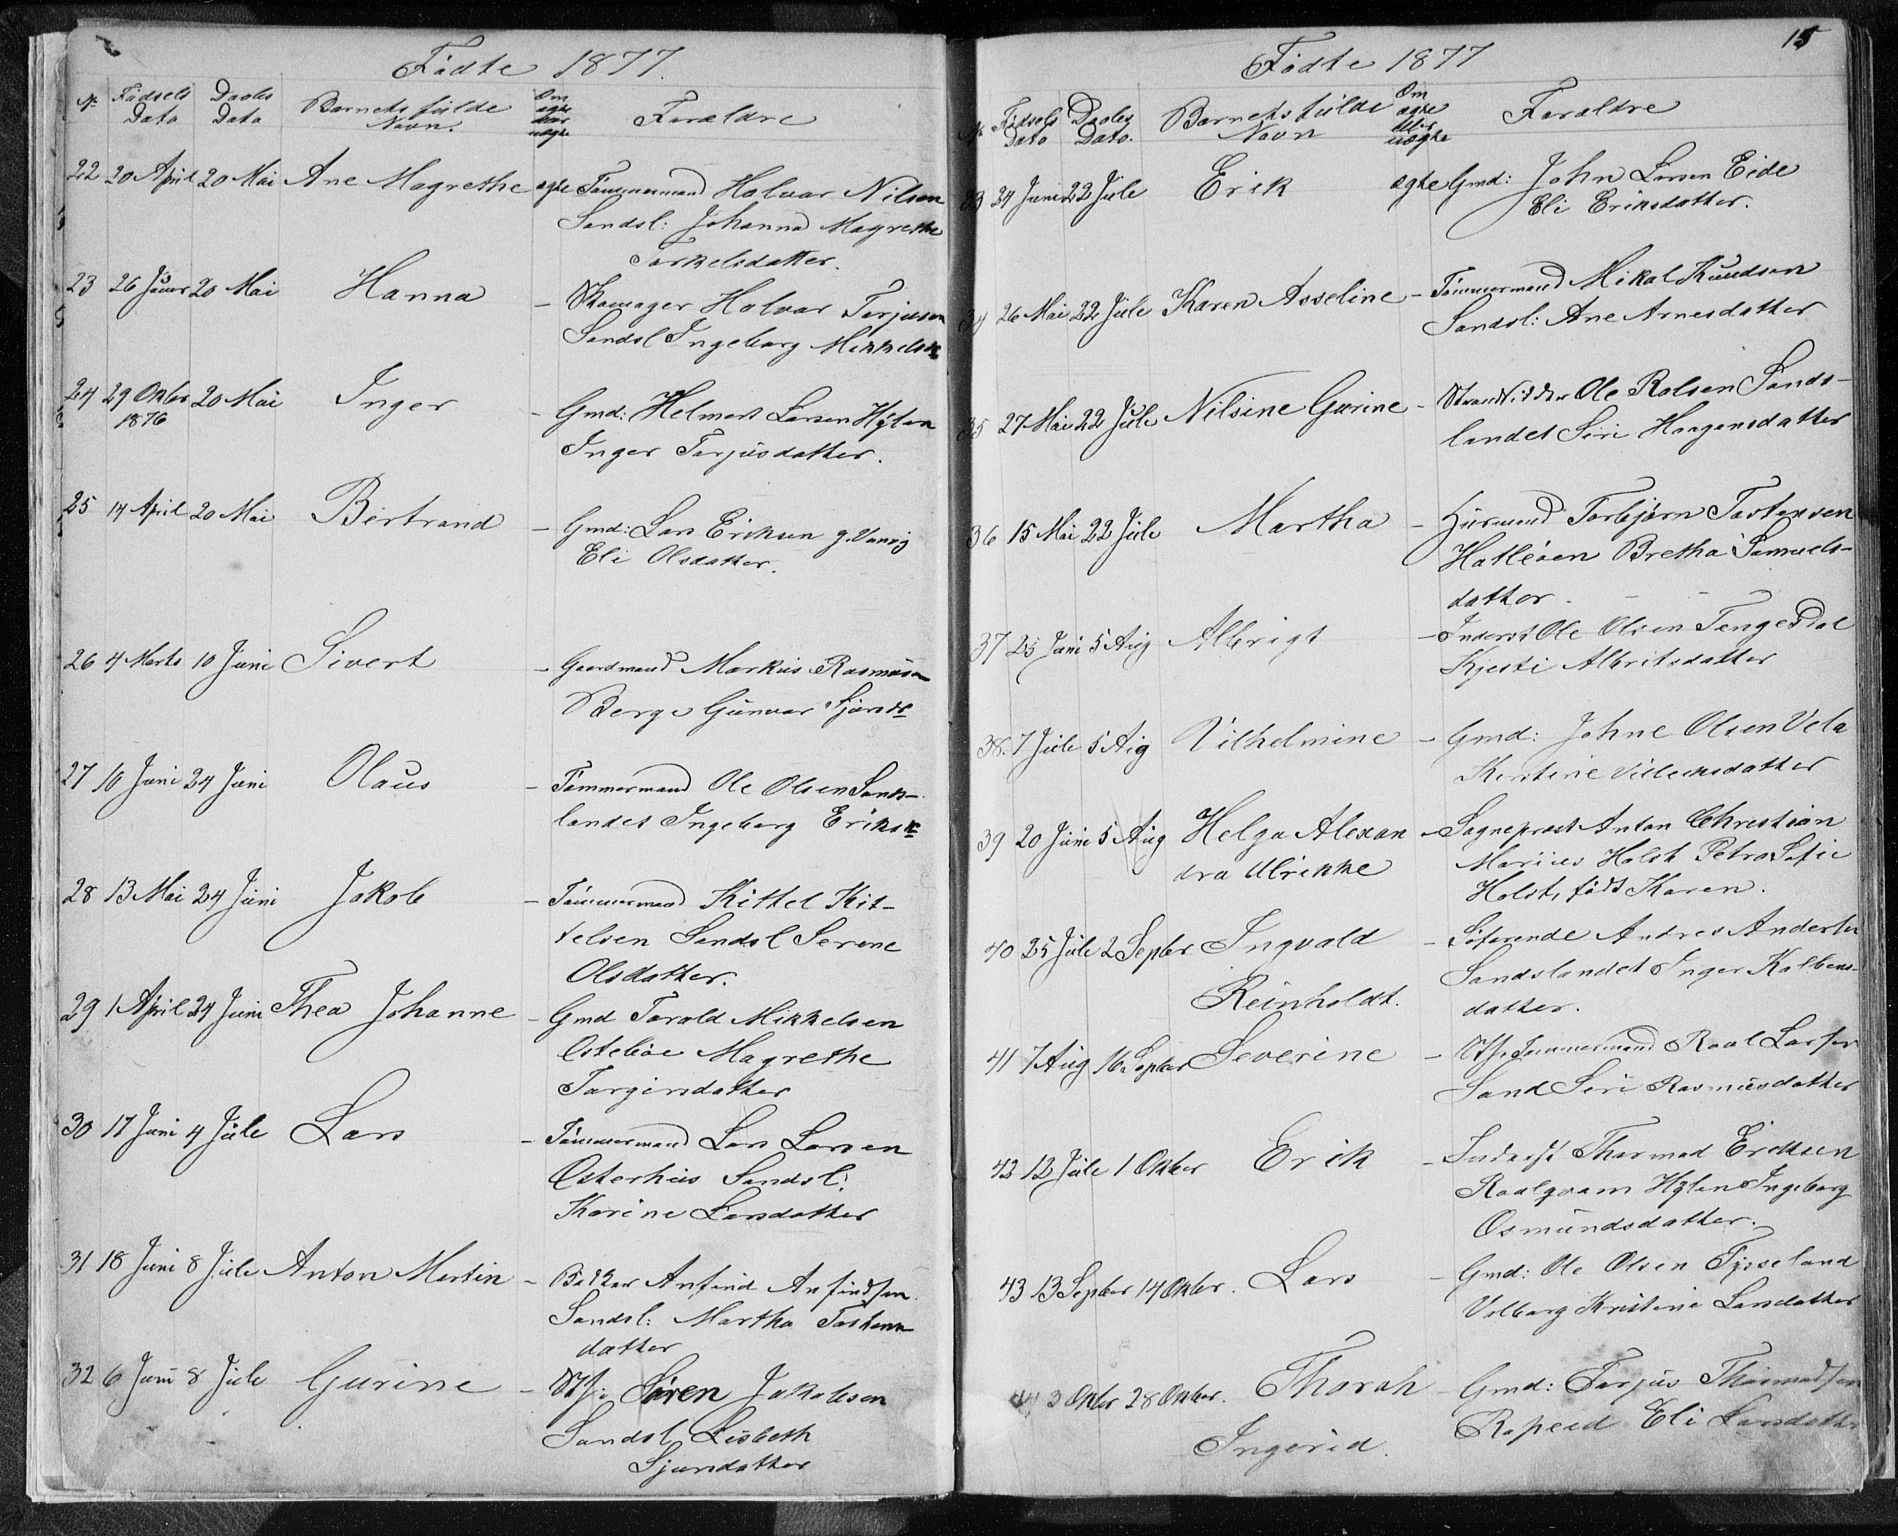 Fødte 1877.
No Fødsels Daabs Barnets fulde Om ægte Forældre
Dato Dato Navn. eller uægte
22 20 April 20 Mai Ane Magrethe ægte Tømmermand Halvar Nilsen
Sandsl: Johanna Magrethe
Torkelsdatter.
23 26 20 Mai Hanna - Halvar Terjusen
Sandsl Ingeborg
24 29 Oktbr 20 Mai Inger - Gmd: Helmert Larsen Hylen
1876
Inger Terjusdatter.
25 14 April 20 Mai Bertrand - Gmd: Lars Eriksen
Eli Olsdatter.
26 4 Marts 10 Juni Sivert - Gaardmand Markus Rasmusen
Berge Gunvar
27 10 Juni 24 Juni Olaus - Tømmermand Ole Olsen Sands-
landet Ingeborg Eriksd
28 13 Mai 24 Juni Jakob - Tømmermand Kittel Kit-
telsen Sandsl Serene
Olsdatter.
29 1 April 24 Juni Thea Johanne - Gmd Tarald Mikkelsen
Østebøe Magrethe
30 17 Juni 4 Jule Lars - Tømmermand Lars Larsen
Østerhus Sandsl:
Karine Larsdatter
31 18 Juni 8 Jule Anton Martin - Bødker Anfind Anfindsen
Sandsl: Martha
datter
32 6 Juni 8 Jule Gurine - Søren Jakobsen
Sandsl Lisbeth
Sjursdatter
15
Fødte 1877
No Fødsels Daabs Barnets fulde Om ægte Forældre
Dato Dato. Navn eller uægte
33 24 Juni 22 Jule Erik ægte Gmd: John Larsen Eide
Eli Eriksdatter.
34 26 Mai 22 Jule Karen Asseline - Tømmermand Mikal Knudsen
Sandsl: Ane Arnesdatter
35 27 Mai 22 Jule Nilsine Gurine - Strandsidder Ole Rolsen Sands-
landet Siri Haagensdatter
36 15 Mai 22 Jule Martha - Husmand Torbjørn Tostensen
Hatleøen Bretha Samuels-
datter.
37 25 Juni 5 Aug Albrigt - Inderst Ole Olsen Tengesdal
Kjesti Albritsdatter
38. 7 Jule 5 Aug Vilhelmine - Gmd: Johne Olsen Vela
Kirstine
39 20 Juni 5 Aug Helga Alexan - Sogneprest Anton Christian
dra Ulrikke Marius Holst Petra Sofie
Holst, født Karen.
40 25 Jule 2 Septbr Ingvald - Søfarende Andres Andersen
Reinholdt. Sandslandet Inger Kolbens-
datter.
41 7 Aug 16 Septbr Severine - Tømmermand Roal Larsen
Sand Siri Rasmusdatter
42 12 Jule 1 Oktbr Erik - Inderst Thormod Eriksen
Roalqvam Hylen Ingeborg
Osmundsdatter.
43 13 Septbr 14 Oktbr. Lars - Gmd: Ole Olsen Tysseland
Valborg Kristine Larsdatter
44 3 Oktbr 28 Oktbr. Thorah - Gmd: Terjus Thormodsen
Ingerid. Rapeed Eli Larsdatter